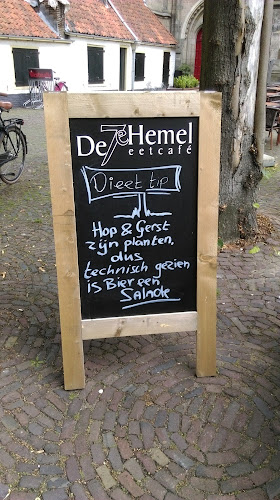 De 7e Hemel
eetcafé
Dieet tip
Hop & Gerst
zijn planten,
dus
technisch gezien
is Bier een
Salade